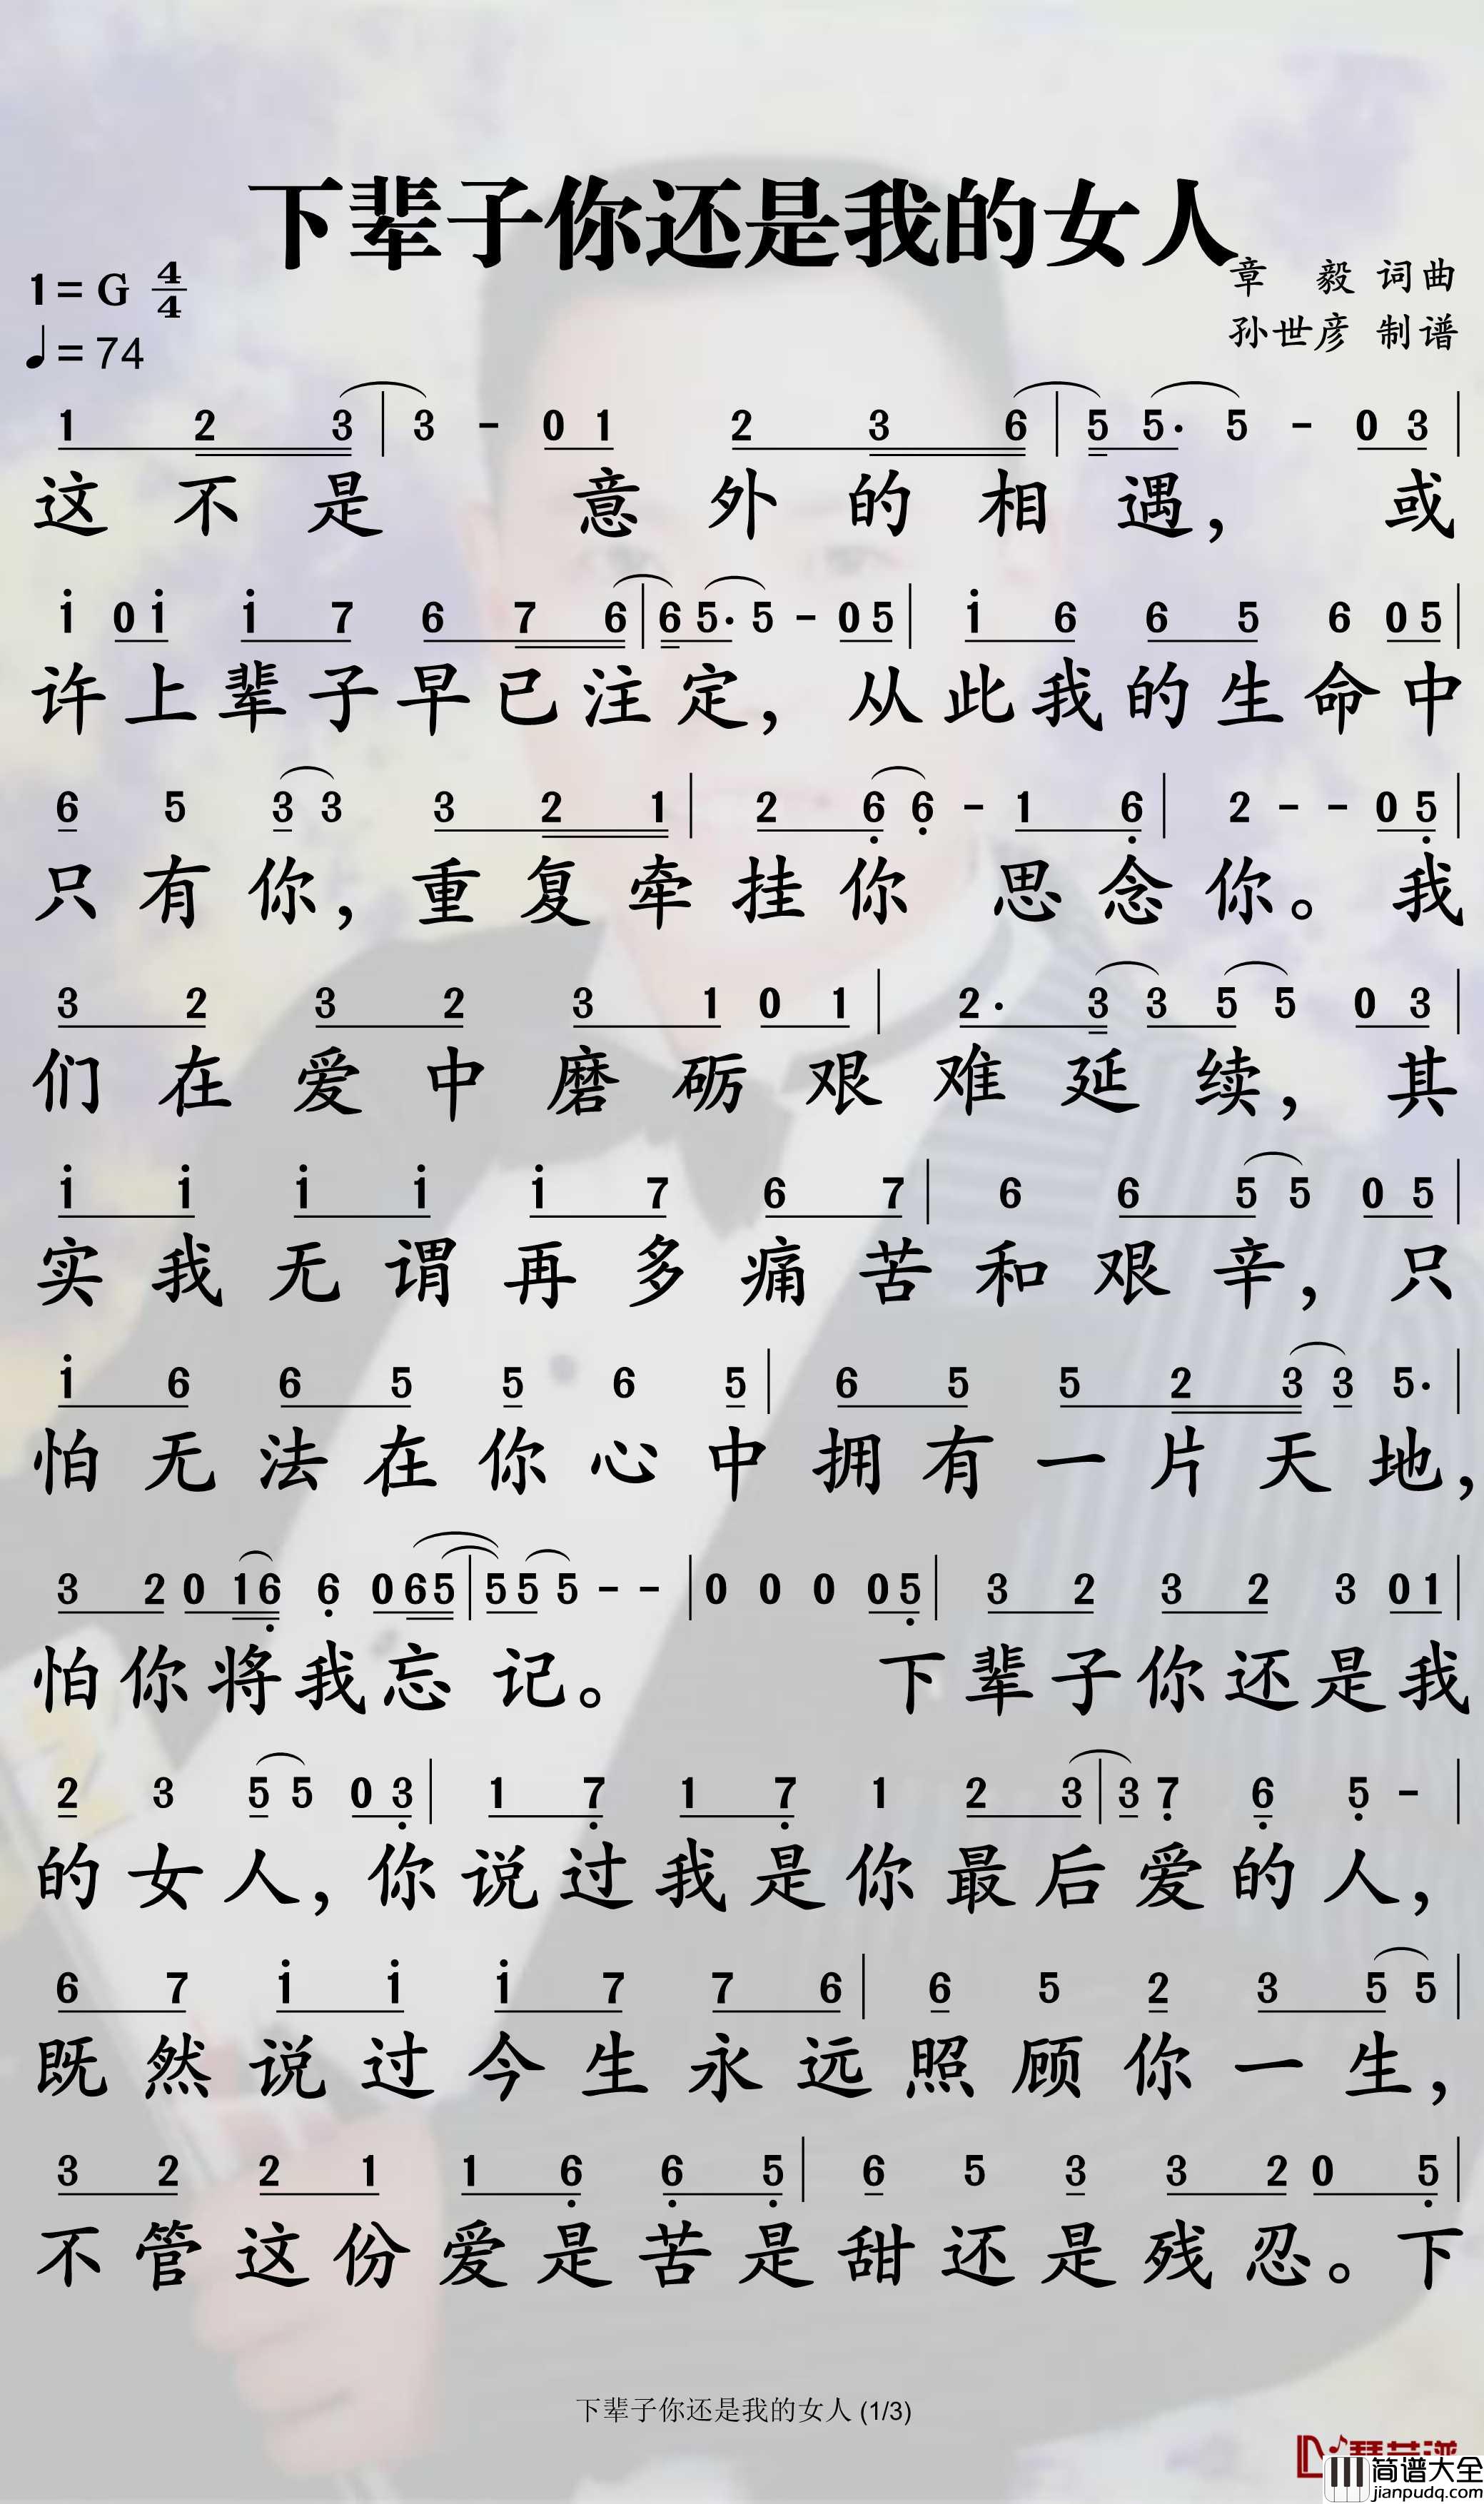 下辈子你还是我的女人
1=G 4/4
章 毅 词曲
♩=74
孙世彦 制谱
1 2 3 | 3 - 0 1 2 3 6 | 5 5· 5 - 0 3 |
这不是 意外的相遇， 或
i 0 i i 7 6 7 6 | 6 5· 5 - 0 5 | i 6 6 5 6 0 5 |
许上辈子早已注定，从此我的生命中
6 5 3 3 3 2 1 | 2 6̣ 6̣ - 1 6̣ | 2 - - 0 5̣ |
只有你，重复牵挂你 思念你。我
3 2 3 2 3 1 0 1 | 2· 3 3 5 5 0 3 |
们在爱中磨砺艰难延续，其
i i i i i 7 6 7 | 6 6 5 5 0 5 |
实我无谓再多痛苦和艰辛，只
i 6 6 5 5 6 5 | 6 5 5 2 3 3 5· |
怕无法在你心中拥有一片天地，
3 2 0 1 6̣ 6̣ 0 6 5 | 5 5 5 - - | 0 0 0 0 5̣ | 3 2 3 2 3 0 1 |
怕你将我忘记。 下辈子你还是我
2 3 5 5 0 3̣ | 1 7̣ 1 7̣ 1 2 3 | 3 7̣ 6̣ 5̣ - |
的女人，你说过我是你最后爱的人，
6 7 i i i 7 7 6 | 6 5 2 3 5 5 |
既然说过今生永远照顾你一生，
3 2 2 1 1 6̣ 6̣ 5̣ | 6 5 3 3 2 0 5̣ |
不管这份爱是苦是甜还是残忍。下
下辈子你还是我的女人 (1/3)
简谱大全
jianpudq.com